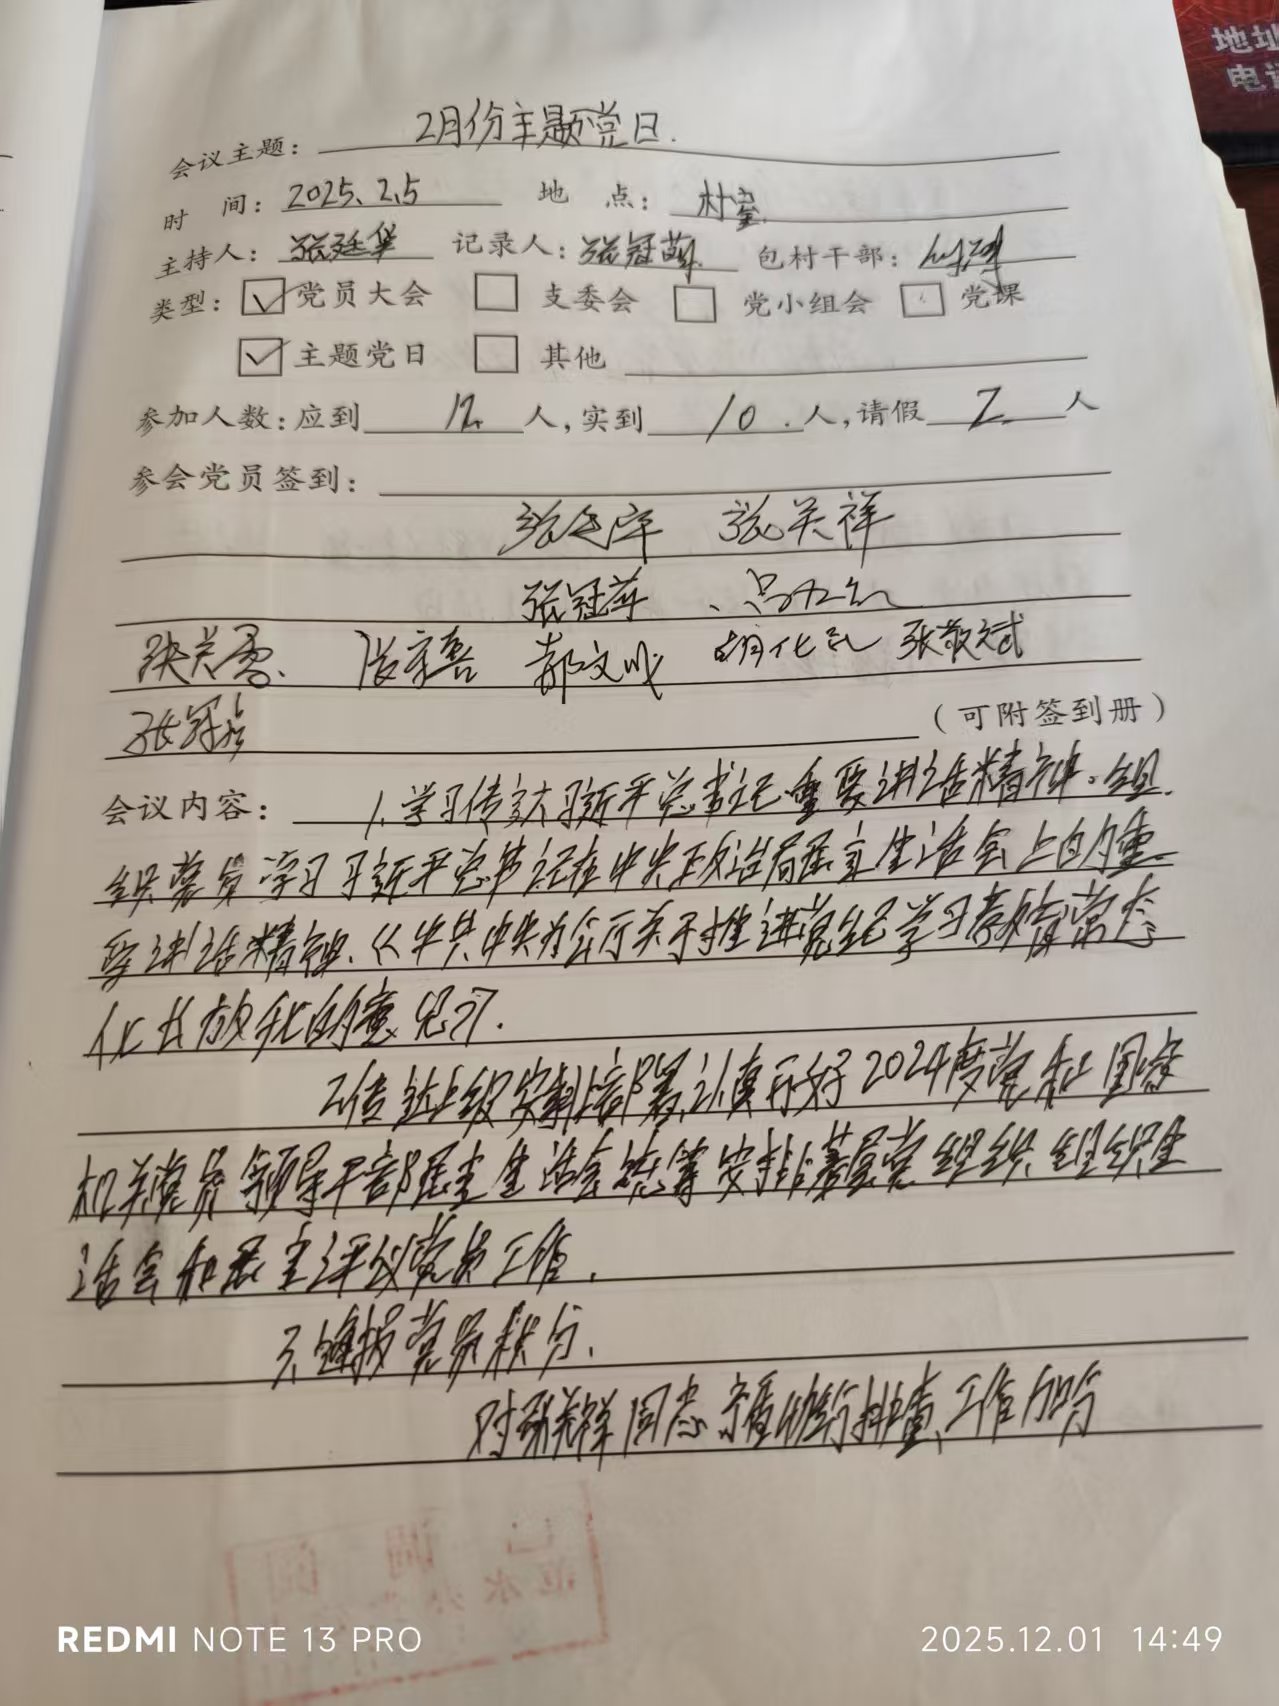 地址
电话
会议主题：2月份主题党日.
时 间：2025.2.5 地 点：村室
主持人：张廷华 记录人：张冠苹 包村干部：
类型：☑党员大会 □ 支委会 □ 党小组会 □ 党课
☑主题党日 □ 其他
参加人数：应到 12 人，实到 10 . 人，请假 2 人
参会党员签到：
张关祥
张冠苹
郝文成 胡化 张敬斌
（可附签到册）
会议内容：1.学习传达习近平总书记重要讲话精神。组
织党员学习习近平总书记在中央政治局民主生活会上的重
要讲话精神.《中共中央办公厅关于推进党纪学习教育常态
化长效化的意见》.
2传达上级安排部署,认真开好2024年度党和国家
机关党员领导干部民主生活会统筹安排基层党组织组织生
活会和民主评议党员工作.
3.通报党员积分.
对张关祥同志 排查、工作加分
REDMI NOTE 13 PRO
2025.12.01 14:49